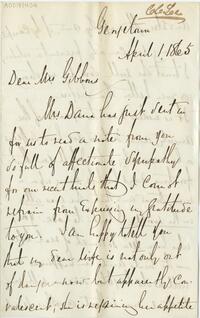 Col Lee
Georgetown
April 1, 1865
Dear Mrs Gibbons
Mrs Dana has just sent in
for us to read a note from you
so full of affectionate sympathy
for our recent trials that I cannot
refrain from expressing my gratitude
to you. I am happy to tell you
that my dear wife is not only out
of danger now but apparently con-
valescent; she is regaining her appetite